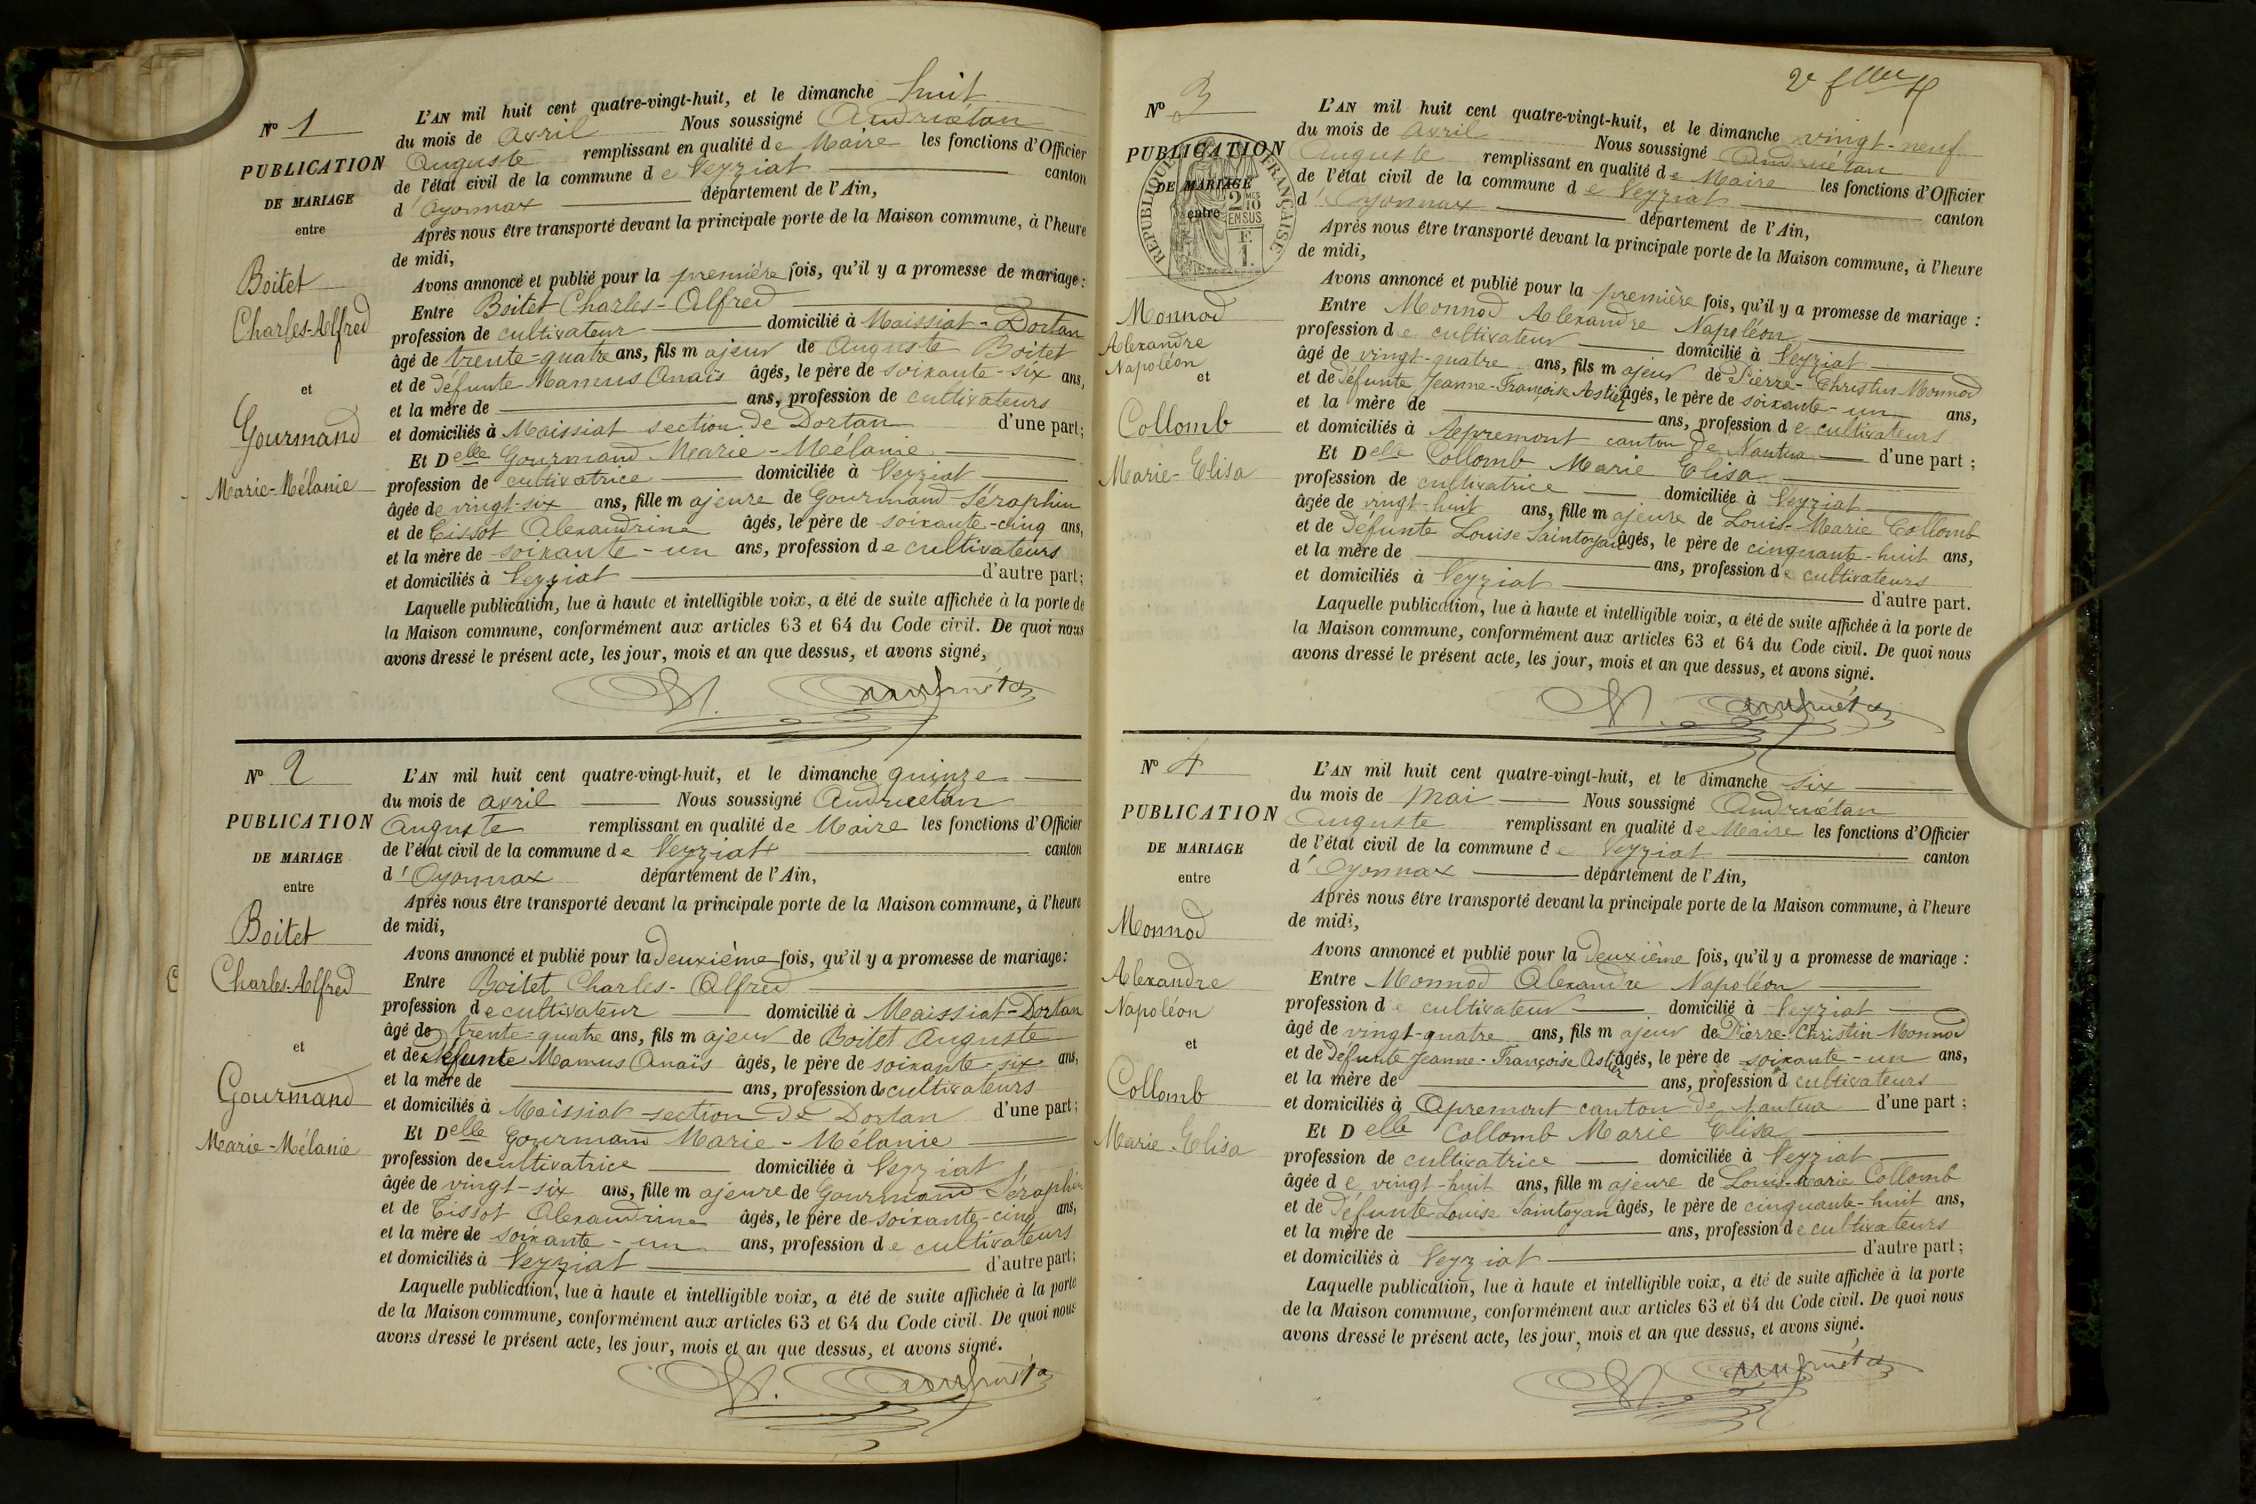 N° 1
PUBLICATION
DE MARIAGE
entre
Boitet
Charles-Alfred
et
Gourmand
Marie-Mélanie
L'AN mil huit cent quatre-vingt-huit, et le dimanche huit
du mois de avril Nous soussigné Andruétan
Auguste remplissant en qualité de Maire les fonctions d'Officier
de l'état civil de la commune de Veyziat canton
d'Oyonnax département de l'Ain,
Après nous être transporté devant la principale porte de la Maison commune, à l'heure
de midi,
Avons annoncé et publié pour la première fois, qu'il y a promesse de mariage :
Entre Boitet Charles-Alfred
profession de cultivateur domicilié à Maissiat-Dortan
âgé de trente-quatre ans, fils majeur de Auguste Boitet
et de défunte Mamus Anaïs âgés, le père de soixante-six ans,
et la mère de ans, profession de cultivateurs
et domiciliés à Maissiat section de Dortan d'une part;
Et Delle Gourmand Marie-Mélanie
profession de cultivatrice domiciliée à Veyziat
âgée de vingt-six ans, fille majeure de Gourmand Séraphin
et de Tissot Alexandrine âgés, le père de soixante-cinq ans,
et la mère de soixante-un ans, profession de cultivateurs
et domiciliés à Veyziat d'autre part;
Laquelle publication, lue à haute et intelligible voix, a été de suite affichée à la porte de
la Maison commune, conformément aux articles 63 et 64 du Code civil. De quoi nous
avons dressé le présent acte, les jour, mois et an que dessus, et avons signé,
N° 2
PUBLICATION
DE MARIAGE
entre
Boitet
Charles-Alfred
et
Gourmand
Marie-Mélanie
L'AN mil huit cent quatre-vingt-huit, et le dimanche quinze
du mois de avril Nous soussigné Andruétan
Auguste remplissant en qualité de Maire les fonctions d'Officier
de l'état civil de la commune de Veyziat canton
d'Oyonnax département de l'Ain,
Après nous être transporté devant la principale porte de la Maison commune, à l'heure
de midi,
Avons annoncé et publié pour la deuxième fois, qu'il y a promesse de mariage:
Entre Boitet Charles-Alfred
profession de cultivateur domicilié à Maissiat-Dortan
âgé de trente-quatre ans, fils majeur de Boitet Auguste
et de défunte Mamus Anaïs âgés, le père de soixante-six ans,
et la mère de ans, profession de cultivateurs
et domiciliés à Maissiat section de Dortan d'une part;
Et Delle Gourmand Marie-Mélanie
profession de cultivatrice domiciliée à Veyziat
âgée de vingt-six ans, fille majeure de Gourmand Séraphin
et de Tissot Alexandrine âgés, le père de soixante-cinq ans,
et la mère de soixante-un ans, profession de cultivateurs
et domiciliés à Veyziat d'autre part;
Laquelle publication, lue à haute et intelligible voix, a été de suite affichée à la porte
de la Maison commune, conformément aux articles 63 et 64 du Code civil. De quoi nous
avons dressé le présent acte, les jour, mois et an que dessus, et avons signé.
2e
N° 3
PUBLICATION
DE MARIAGE
entre
RÉPUBLIQUE FRANÇAISE
2/10 EN SUS
F. 1.
Monnod
Alexandre
Napoléon
et
Collomb
Marie-Elisa
L'AN mil huit cent quatre-vingt-huit, et le dimanche vingt-neuf
du mois de avril Nous soussigné Andruétan
Auguste remplissant en qualité de Maire les fonctions d'Officier
de l'état civil de la commune de Veyziat canton
d'Oyonnax département de l'Ain,
Après nous être transporté devant la principale porte de la Maison commune, à l'heure
de midi,
Avons annoncé et publié pour la première fois, qu'il y a promesse de mariage :
Entre Monnod Alexandre Napoléon
profession de cultivateur domicilié à Veyziat
âgé de vingt-quatre ans, fils majeur de Pierre-Christin Monnod
et de défunte Jeanne-Françoise Astier âgés, le père de soixante-un ans,
et la mère de ans, profession de cultivateurs
et domiciliés à Apremont canton de Nantua d'une part ;
Et Delle Collomb Marie Elisa
profession de cultivatrice domiciliée à Veyziat
âgée de vingt-huit ans, fille majeure de Louis-Marie Collomb
et de défunte Louise Saintoyan âgés, le père de cinquante-huit ans,
et la mère de ans, profession de cultivateurs
et domiciliés à Veyziat d'autre part.
Laquelle publication, lue à haute et intelligible voix, a été de suite affichée à la porte de
la Maison commune, conformément aux articles 63 et 64 du Code civil. De quoi nous
avons dressé le présent acte, les jour, mois et an que dessus, et avons signé.
N° 4
PUBLICATION
DE MARIAGE
entre
Monnod
Alexandre
Napoléon
et
Collomb
Marie-Elisa
L'AN mil huit cent quatre-vingt-huit, et le dimanche six
du mois de mai Nous soussigné Andruétan
Auguste remplissant en qualité de Maire les fonctions d'Officier
de l'état civil de la commune de Veyziat canton
d'Oyonnax département de l'Ain,
Après nous être transporté devant la principale porte de la Maison commune, à l'heure
de midi,
Avons annoncé et publié pour la deuxième fois, qu'il y a promesse de mariage :
Entre Monnod Alexandre Napoléon
profession de cultivateur domicilié à Veyziat
âgé de vingt-quatre ans, fils majeur de Pierre-Christin Monnod
et de défunte Jeanne-Françoise Astier âgés, le père de soixante-un ans,
et la mère de ans, profession d cultivateurs
et domiciliés à Apremont canton de Nantua d'une part ;
Et Delle Collomb Marie Elisa
profession de cultivatrice domiciliée à Veyziat
âgée de vingt-huit ans, fille majeure de Louis-Marie Collomb
et de défunte Louise Saintoyan âgés, le père de cinquante-huit ans,
et la mère de ans, profession de cultivateurs
et domiciliés à Veyziat d'autre part ;
Laquelle publication, lue à haute et intelligible voix, a été de suite affichée à la porte
de la Maison commune, conformément aux articles 63 et 64 du Code civil. De quoi nous
avons dressé le présent acte, les jour, mois et an que dessus, et avons signé.